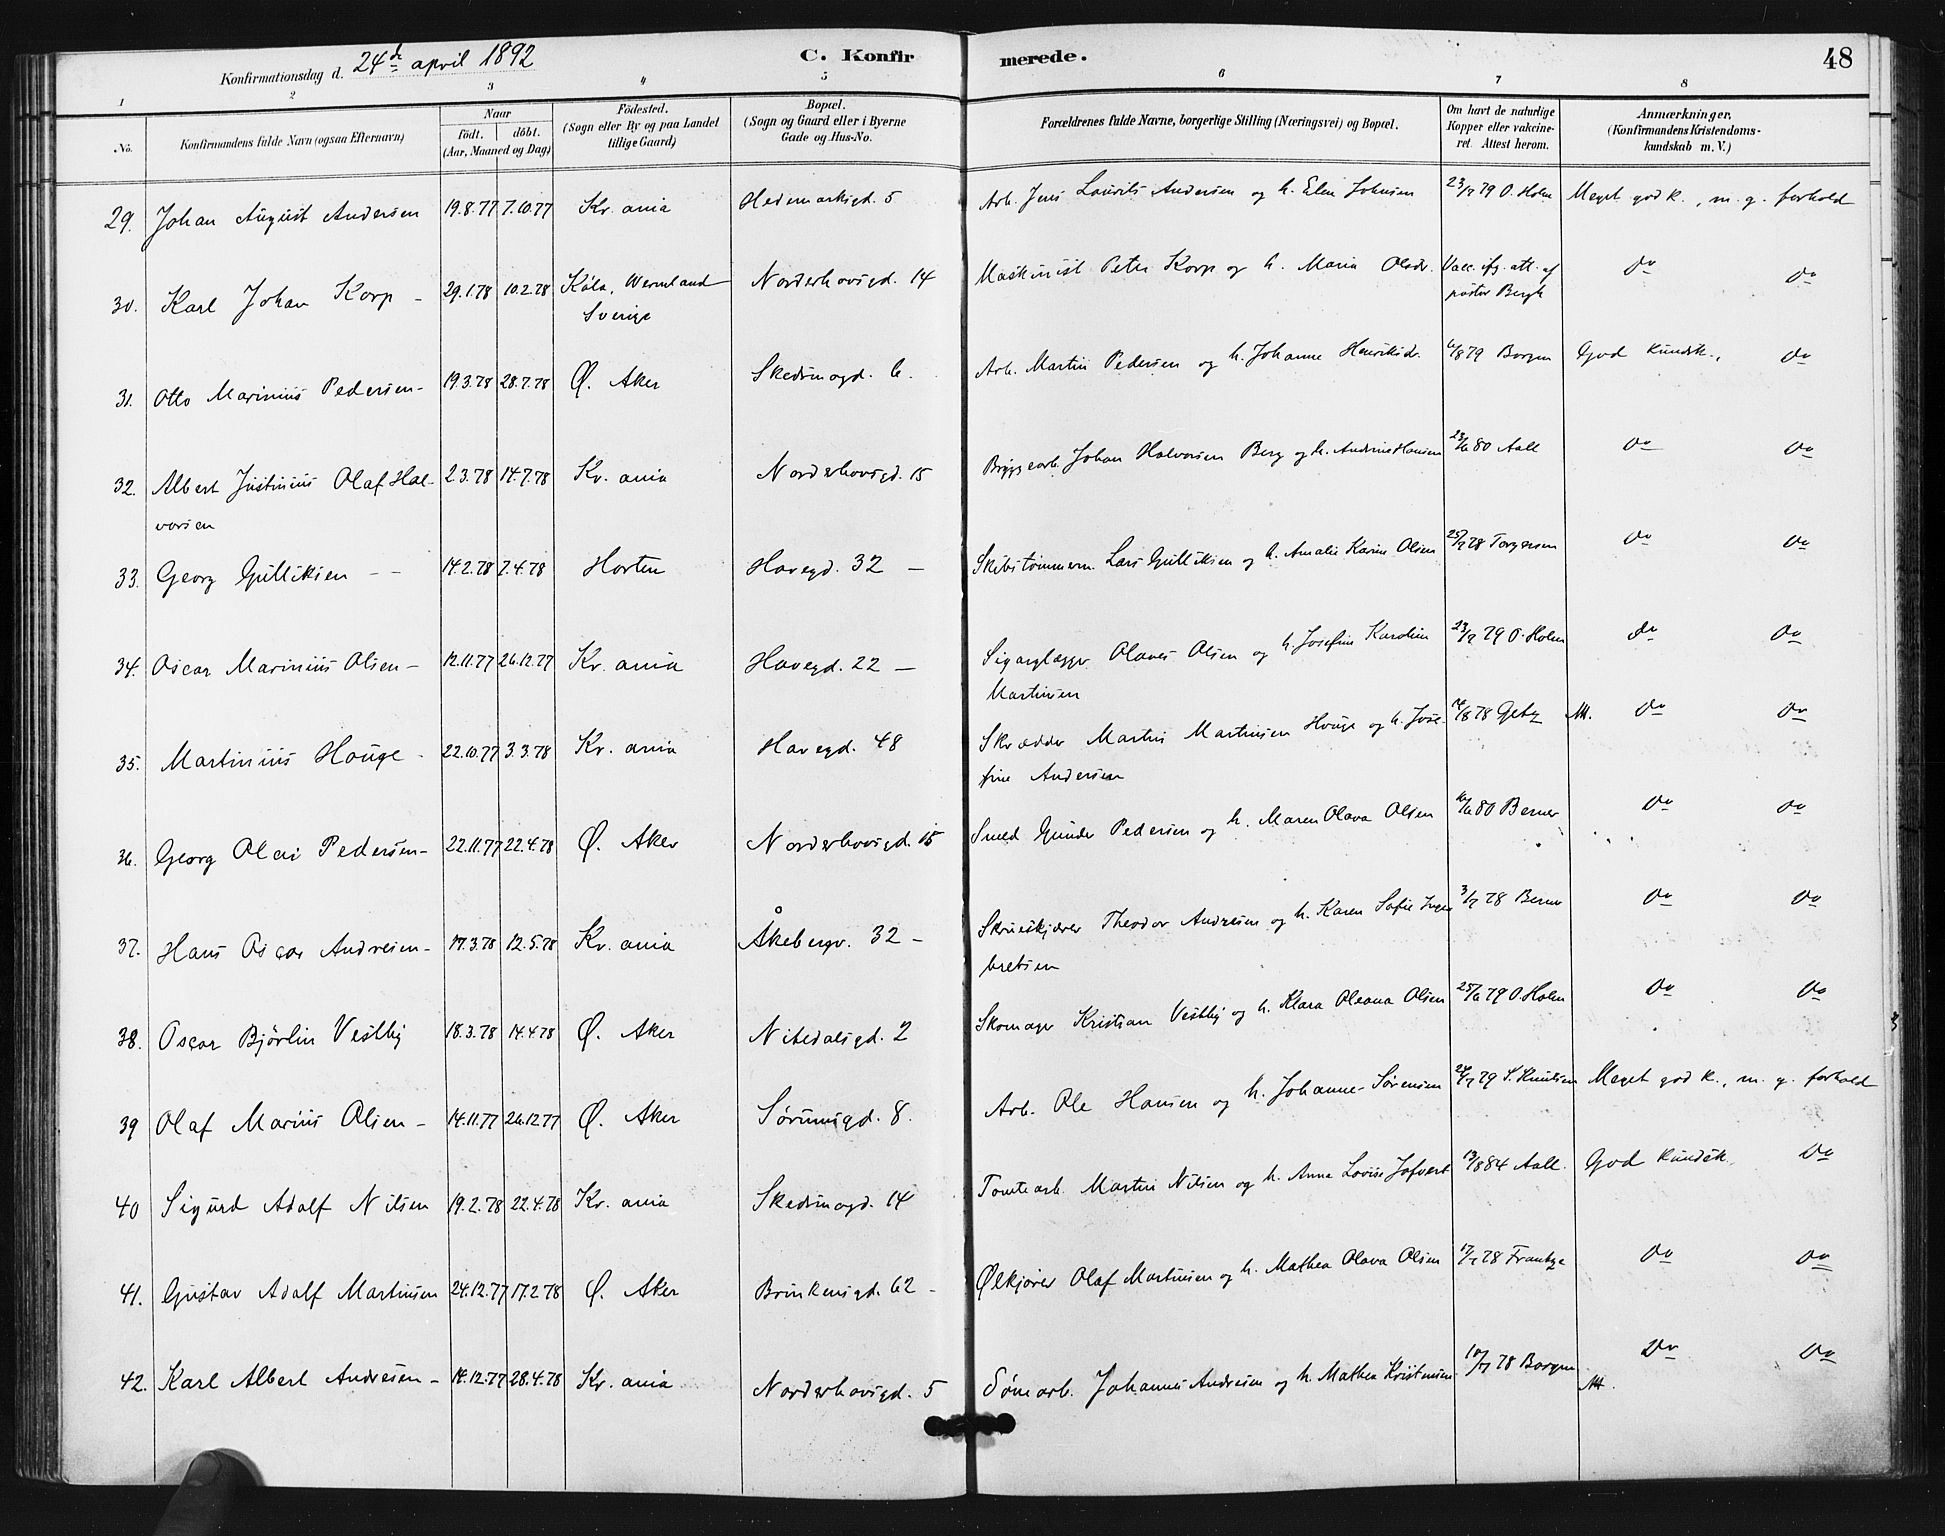 Konfirmationsdag d. 24de april 1892 C. Konfirmerede. 48
1 2 3 4 5 6 7 8
No. Konfirmandens fulde Navn (ogsaa Efternavn) Naar født. døbt. (Aar, Maaned og Dag) Fødested. (Sogn eller By og paa Landet tillige Gaard) Bopæl. (Sogn og Gaard eller i Byerne Gade og Hus-No. Forældrenes fulde Navne, borgerlige Stilling (Næringsvei) og Bopæl. Om havt de naturlige Kopper eller vakcineret. Attest herom. Anmærkninger, (Konfirmandens Kristendomskundskab m. V.)
29. Johan August Andersen 19.8.77 7.10.77 Kr.ania Hedemarksgd. 5 Arb. Jens Laurits Andersen og h. Elen Johnsen 79 O. Holm Meget god k., m. g. forhold
30. Karl Johan Korp - 29.1.78 10.2.78 Köla, Wermland Norderhovsgd. 14 Maskinist Peter Korp og h. Maria Olsdr. Vacc. ifg. att. af do do
Sverige pastor Bergh
31. Otto Marinius Pedersen - 19.3.78 28.7.78 Ø. Aker Skedsmogd. 6. Arb. Martin Pedersen og h. Johanne Henriksdr. 6/8 79 Borgen God kundsk., do
32. Albert Justinius Olaf Hal- 2.3.78 14.7.78 Kr.ania Norderhovsgd. 15 Bryggearb. Johan Halvorsen Berg og h. Andrine Hansen 80 Aall do do
vorsen
33. Georg Gulliksen - - 14.2.78 7.4.78 Horten Havegd. 32 - Skibstømmerm. Lars Gulliksen og h. Amalie Karine Olsen 78 Torgersen do do
34. Oscar Marinius Olsen - 12.11.77 26.12.77 Kr.ania Havegd. 22 - Sigarlægger Olaves Olsen og h. Josefine Karoline 79 O. Holm do do
Martinsen
35. Martinius Houge - 22.10.77 3.3.78 Kr.ania Havegd. 48 Skrædder Martin Martinsen Houge og h. Jose- 78 Getz do do
fine Andersen
36. Georg Olai Pedersen - 22.11.77 22.4.78 Ø. Aker Norderhovsgd. 15 Smed Gunder Pedersen og h. Maren Olava Olsen 80 Berner do do
37. Hans Oscar Andresen - 17.3.78 12.5.78 Kr.ania Åkebergv. 32 - Skrueskjærer Theodor Andresen og h. Karen Sofie Inge 78 Berner do do
bretsen
38. Oscar Bjørlin Vestby 18.3.78 14.4.78 Ø. Aker Nitedalsgd. 2 Skomager Kristian Vestby og h. Klara Oleana Olsen 79 O. Holm do do
39 Olaf Marius Olsen - 14.11.77 26.12.77 Ø. Aker Sørumsgd. 8. Arb. Ole Hansen og h. Johanne Sørensen 79 S. Knudsen Meget god k., m. g. forhold
40 Sigurd Adolf Nilsen 19.2.78 22.4.78 Kr.ania Skedsmogd. 14 Tomtearb. Martin Nilsen og h. Anna Lovise 13/8 84 Aall. God kundsk. do
41. Gustav Adolf Martinsen 24.12.77 17.2.78 Ø. Aker Brinkensgd. 62 - Ølkjører Olaf Martinsen og h. Mathea Olava Olsen 78 do do
42. Karl Albert Andresen - 14.12.77 28.4.78 Kr.ania Norderhovsgd. 5 Johannes Andresen og h. Mathea Kristensen 78 Borgen do do